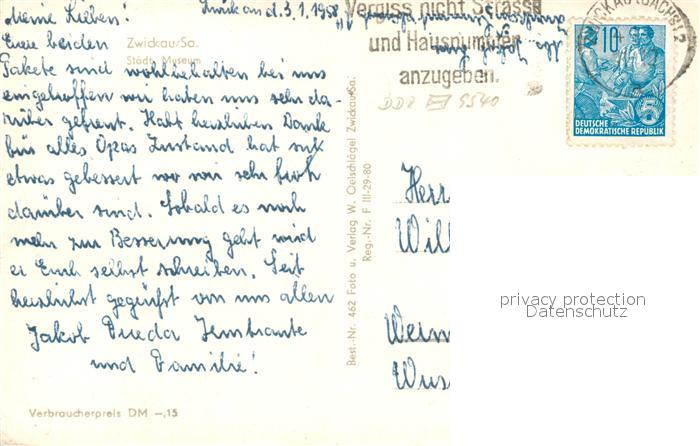 Zwickau d. 3.1.1958
Meine Lieben!
Eure beiden
Pakete sind wohlbehalten bei uns
eingetroffen wir haben uns sehr da-
rüber gefreut. Habt herzlichen Dank
für alles Opas Zustand hat sich
etwas gebessert wo wir sehr froh
darüber sind. Sobald es noch
mehr zur Besserung geht wird
er Euch selbst schreiben. Seit
herzlichst gegrüßt von uns allen
Jakob
und Familie!
Zwickau/Sa.
Städt. Museum
Verbraucherpreis DM -,15
Best.-Nr. 462 Foto u. Verlag W. Oelschlägel Zwickau-Sa.
Reg.-Nr. F III-29-80
Vergiss nicht Strasse
und Hausnummer
anzugeben.
DDR 9540
10
5
DEUTSCHE
DEMOKRATISCHE REPUBLIK
Herr
Will
Weim
Wus
privacy protection
Datenschutz